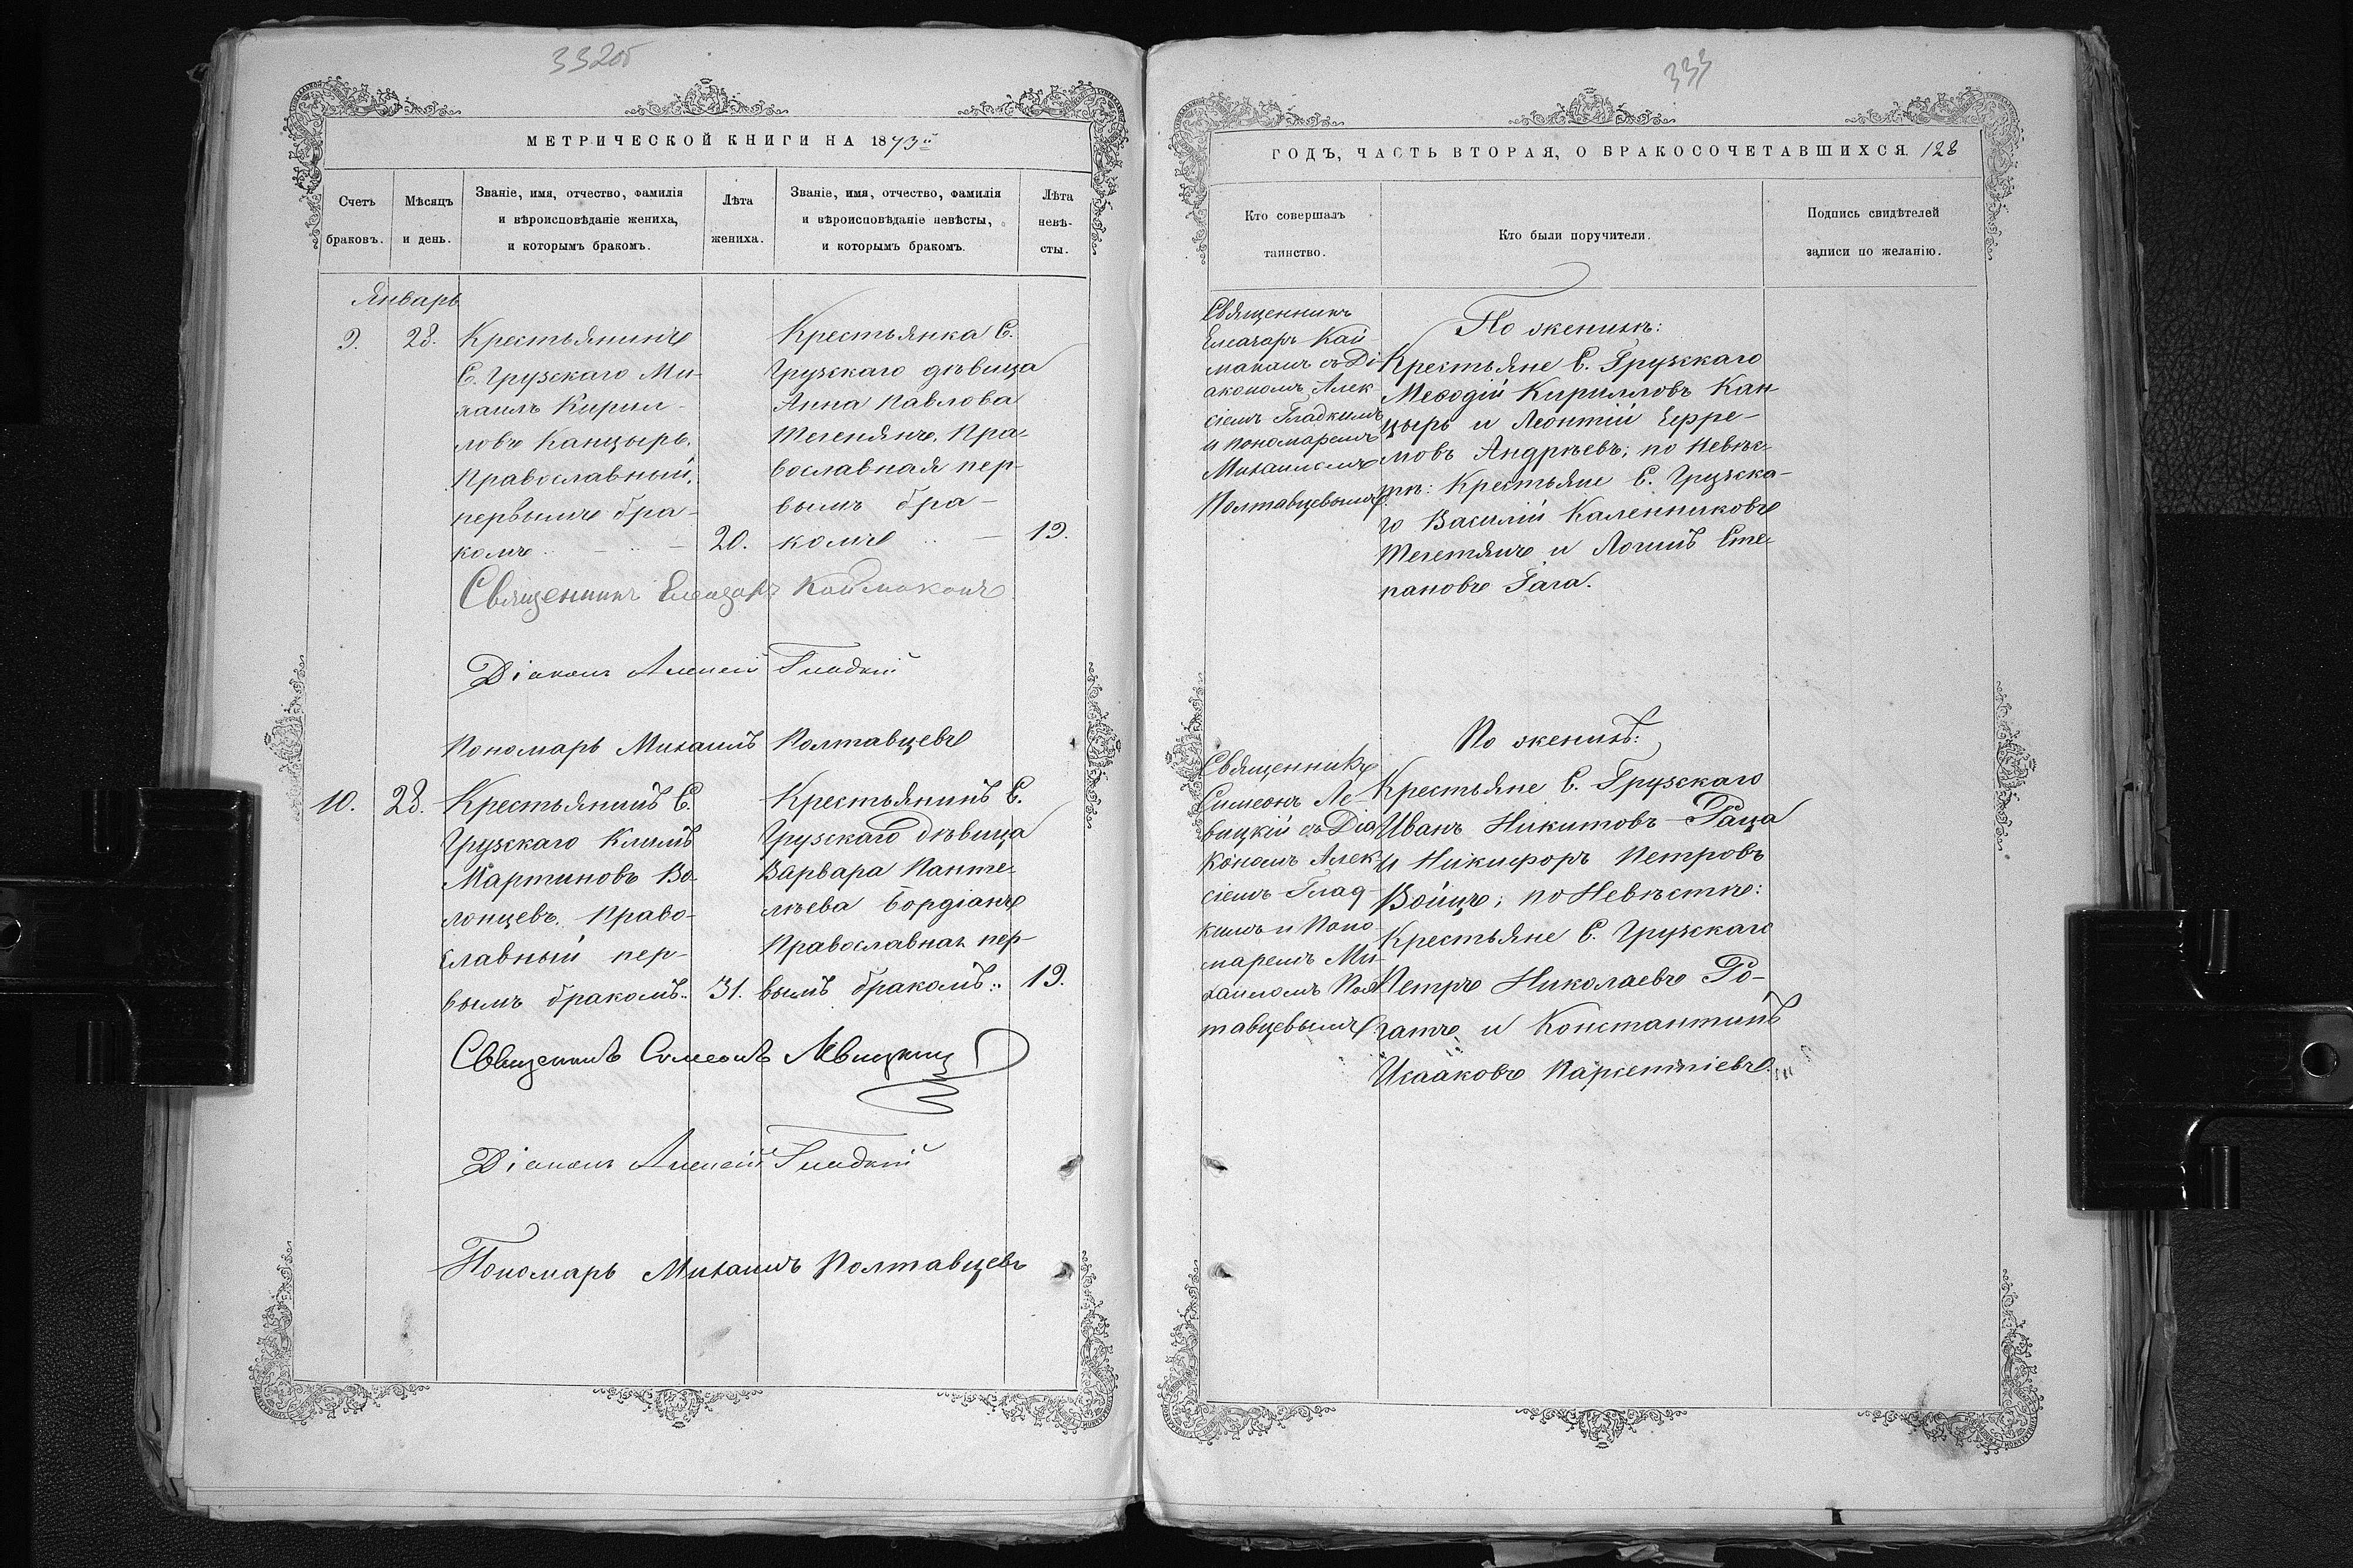 332об
МЕТРИЧЕСКОЙ КНИГИ НА 1873й
Счетъ браковъ.
Мѣсяцъ и день.
Званіе, имя, отчество, фамилія
и вѣроисповѣданіе жениха,
и которымъ бракомъ.
Лѣта
жениха.
Званіе, имя, отчество, фамилія
и вѣроисповѣданіе невѣсты,
и которымъ бракомъ.
Лѣта
невѣ-
сты.
Январь
9.
28.
Крестьянинъ
С. Грузскаго Ми-
хаилъ Кирил-
ловъ Канцыръ.
Православный,
первымъ бра-
комъ
20.
Крестьянка С.
Грузскаго дѣвица
Анна Павлова
Православная пер-
вымъ бра-
комъ
19.
Священникъ Елеазаръ Каймаканъ
Діаконъ Алексій Гладкій
Пономарь Михаилъ Полтавцевъ
10.
28.
Крестьянинъ С.
Грузскаго Климъ
Мартиновъ Во-
лонцевъ. Право-
славный пер-
вымъ бракомъ
31.
Крестьянинъ С.
Грузскаго дѣвица
Варвара Панте-
лѣева Бордіанъ
Православная пер-
вымъ бракомъ
19.
Священникъ Симеонъ Левицкій
Діаконъ Алексій Гладкій
Пономарь Михаилъ Полтавцевъ
333
ГОДЪ, ЧАСТЬ ВТОРАЯ, О БРАКОСОЧЕТАВШИХСЯ. 128
Кто совершалъ
таинство.
Кто были поручители.
Подпись свидѣтелей
записи по желанію.
Священникъ
Елеазаръ Кай
маканъ съ Ді-
акономъ Алек
сіемъ Гладкимъ
и пономаремъ
Михаиломъ
Полтавцевымъ
По женихѣ:
Крестьяне С. Грузскаго
Меѳодій Кирилловъ Кан
цыръ и Леонтій Ефре-
мовъ Андрѣевъ; по Невѣс-
тѣ: Крестьяне С. Грузска-
го Василій Каленниковъ
и Логинъ Сте-
пановъ Гага.
Священникъ
Симеонъ Ле-
вицкій съ Діа
кономъ Алек-
сіемъ Глад-
кимъ и Поно-
маремъ Ми-
хаиломъ Пол
тавцевымъ
По женихѣ:
Крестьяне С. Грузскаго
Иванъ Никитовъ Раца
и Никифоръ Петровъ
Войцъ; по Невѣстѣ:
Крестьяне С. Грузскаго
Петръ Николаевъ Ро-
гатъ и Константинъ
Исааковъ